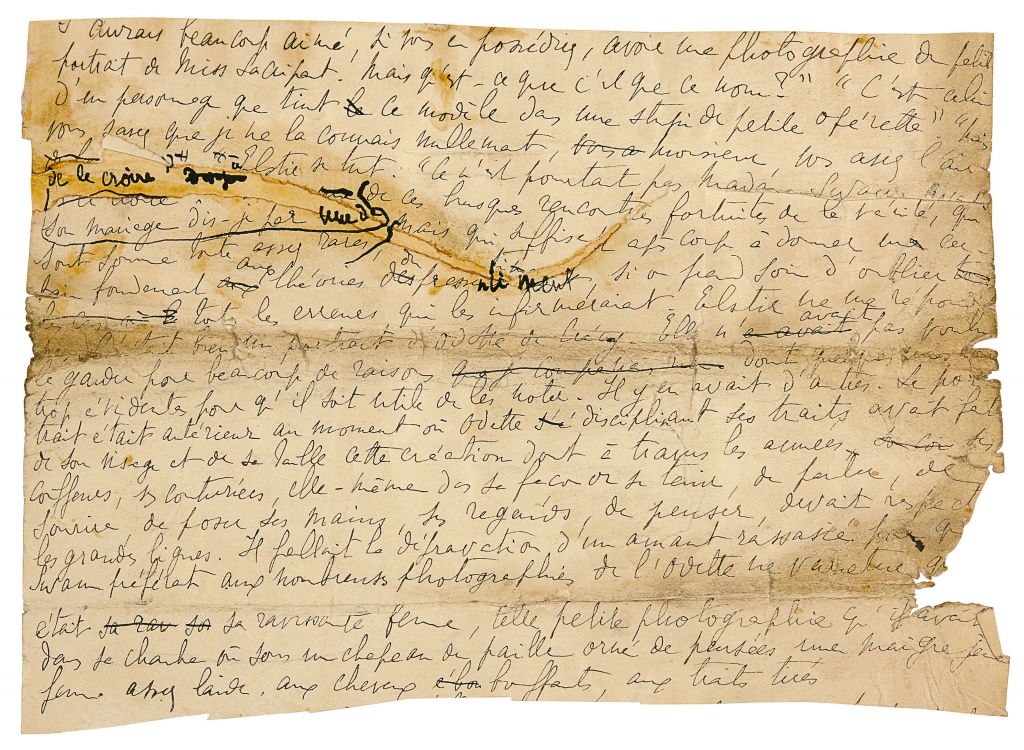 J'aurais beaucoup aimé, si vous en possédiez, avoir une photographie du petit
portrait de Miss Sacripant. Mais qu'est-ce que c'est que ce nom?" "C'est celui
d'un personnage que tint le ce modèle dans une stupide petite opérette." "Mais
vous savez que je ne la connais nullement, vous a monsieur vous avez l'air
de le croire" Elstir se tut. "Ce n'est pourtant pas Madame Swann avant
son mariage dis-je par une de de ces brusques rencontres fortuites de la vérité, qui
sont somme toute assez rares mais qui suffisent après coup à donner un cer
tain fondement aux théories des pressentiments, si on prend soin d'oublier
toutes les erreurs qui les infirmeraient. Elstir ne me répondit
pas. C'était bien un portrait d'Odette de Crécy. Elle n'a avait pas voulu
le garder pour beaucoup de raisons dont quelques unes
trop évidentes pour qu'il soit utile de les noter. Il y en avait d'autres. Le por
trait était antérieur au moment où Odette disciplinant ses traits avait fait
de son visage et de sa taille cette création dont à travers les années, ses
coiffeurs, ses couturières, elle-même dans sa façon de se tenir, de parler, de
sourire de poser ses mains, ses regards, de penser, devait respecter
les grandes lignes. Il fallait la dépravation d'un amant rassasié pour que
Swann préférât aux nombreuses photographies de l'Odette ne varietur qu
était sa rav son sa ravissante femme, telle petite photographie qu'il avait
dans sa chambre où sous un chapeau de paille orné de pensées une maigre jeune
femme assez laide, aux cheveux bouffants, aux traits tirés